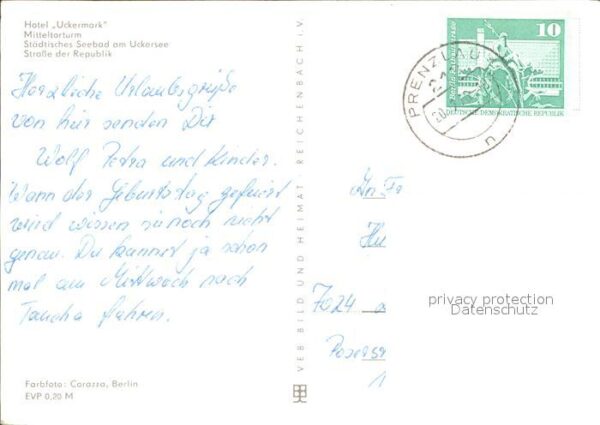 Hotel „Uckermark"
Mitteltorturm
Städtisches Seebad am Uckersee
Straße der Republik
Herzliche Urlaubsgrüße
von hier senden Dir
Wolf Petra und Kinder.
Wann der Geburtstag gefeiert
wird wissen sie noch nicht
genau. Du kannst ja schon
mal am Mittwoch nach
Taucha fahren.
Farbfoto: Carazza, Berlin
EVP 0,20 M
VEB BILD UND HEIMAT REICHENBACH i. V
10
DEUTSCHE DEMOKRATISCHE REPUBLIK
PRENZLAU
n
An Fr
7024
1
privacy protection
Datenschutz